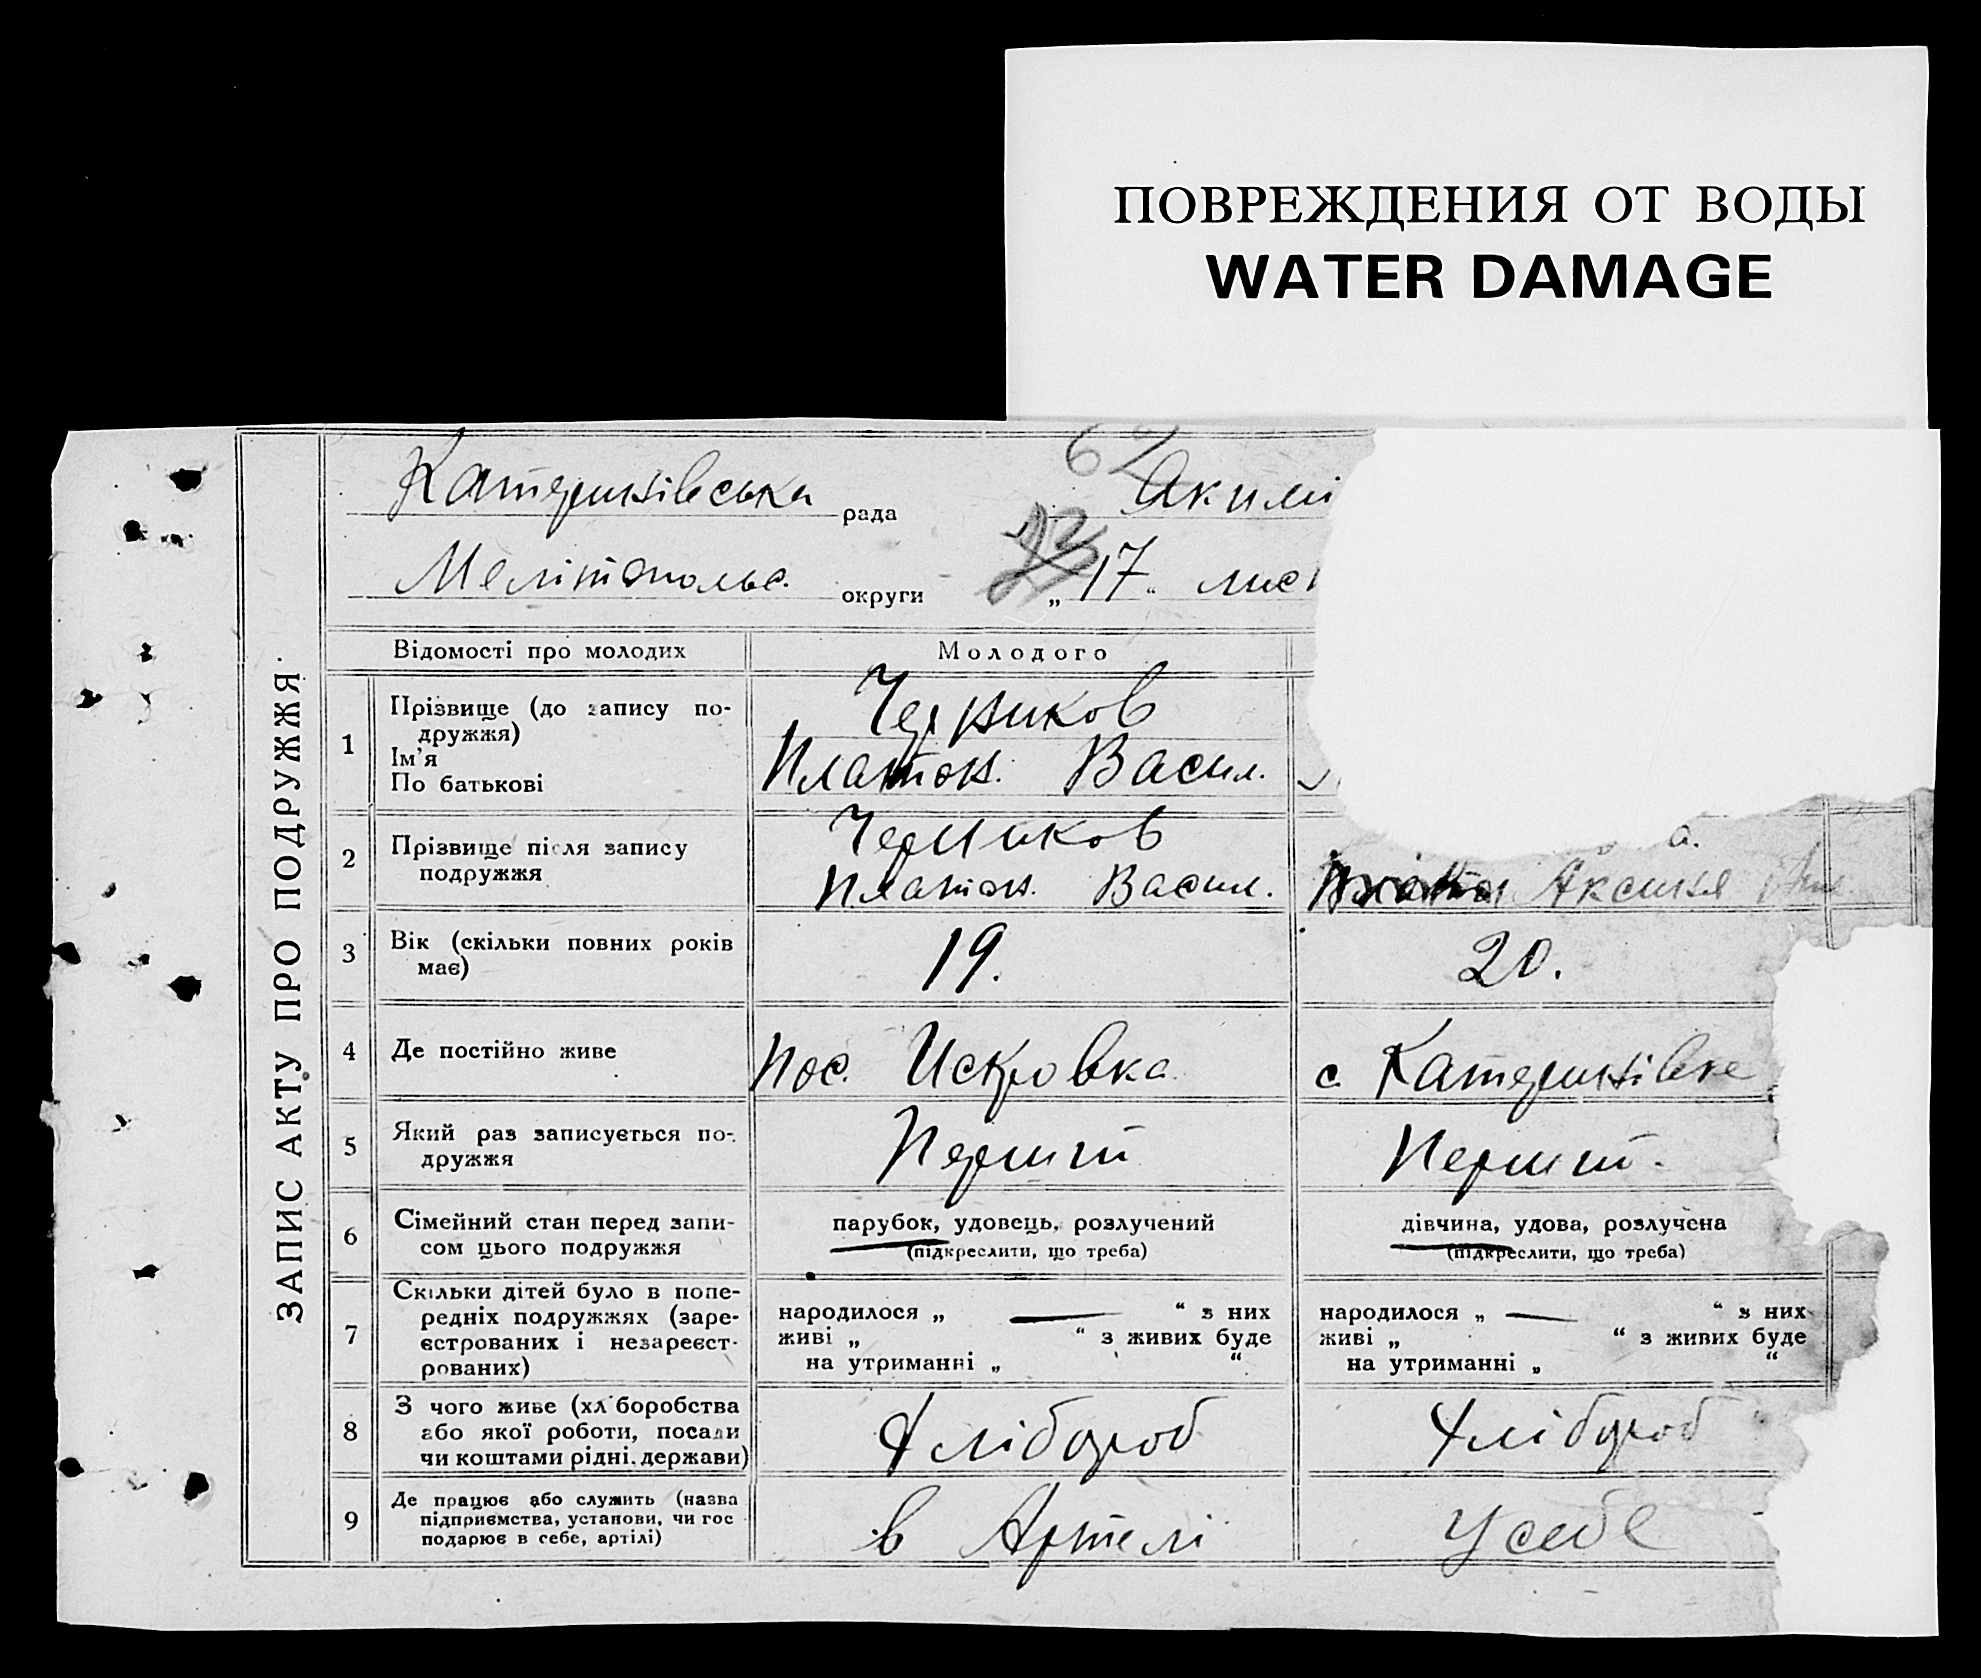 ПОВРЕЖДЕНИЯ ОТ ВОДЫ
WATER DAMAGE
62
Катеринівська рада Акимі
Мелітопольс. округи 23 „17“ лист
ЗАПИС АКТУ ПРО ПОДРУЖЖЯ
Відомості про молодих Молодого
1 Прізвище (до запису по-
дружжя)
Ім'я
По батькові
Черников
Платон. Васил.
2 Прізвище після запису
подружжя
Черников
Платон. Васил.
а.
Аксиня
3 Вік (скільки повних років
має)
19. 20.
4 Де постійно живе Пос. Искровка с. Катеринівке
5 Який раз записується по-
дружжя
Перший Перший.
6 Сімейний стан перед запи-
сом цього подружжя
парубок, удовець, розлучений
(підкреслити, що треба)
дівчина, удова, розлучена
(підкреслити, що треба)
7 Скільки дітей було в попе-
редніх подружжях (заре-
єстрованих і незареєст-
рованих)
народилося „ — “ з них
живі „ “ з живих буде
на утриманні „ “
народилося „ — “ з них
живі „ “ з живих буде
на утриманні „ “
8 З чого живе (хл боробства
або якої роботи, посади
чи коштами рідні. держави)
Хлібороб Хлібороб
9 Де працює або служить (назва
підприємства, установи, чи гос
подарює в себе, артілі)
в Артелі У себе